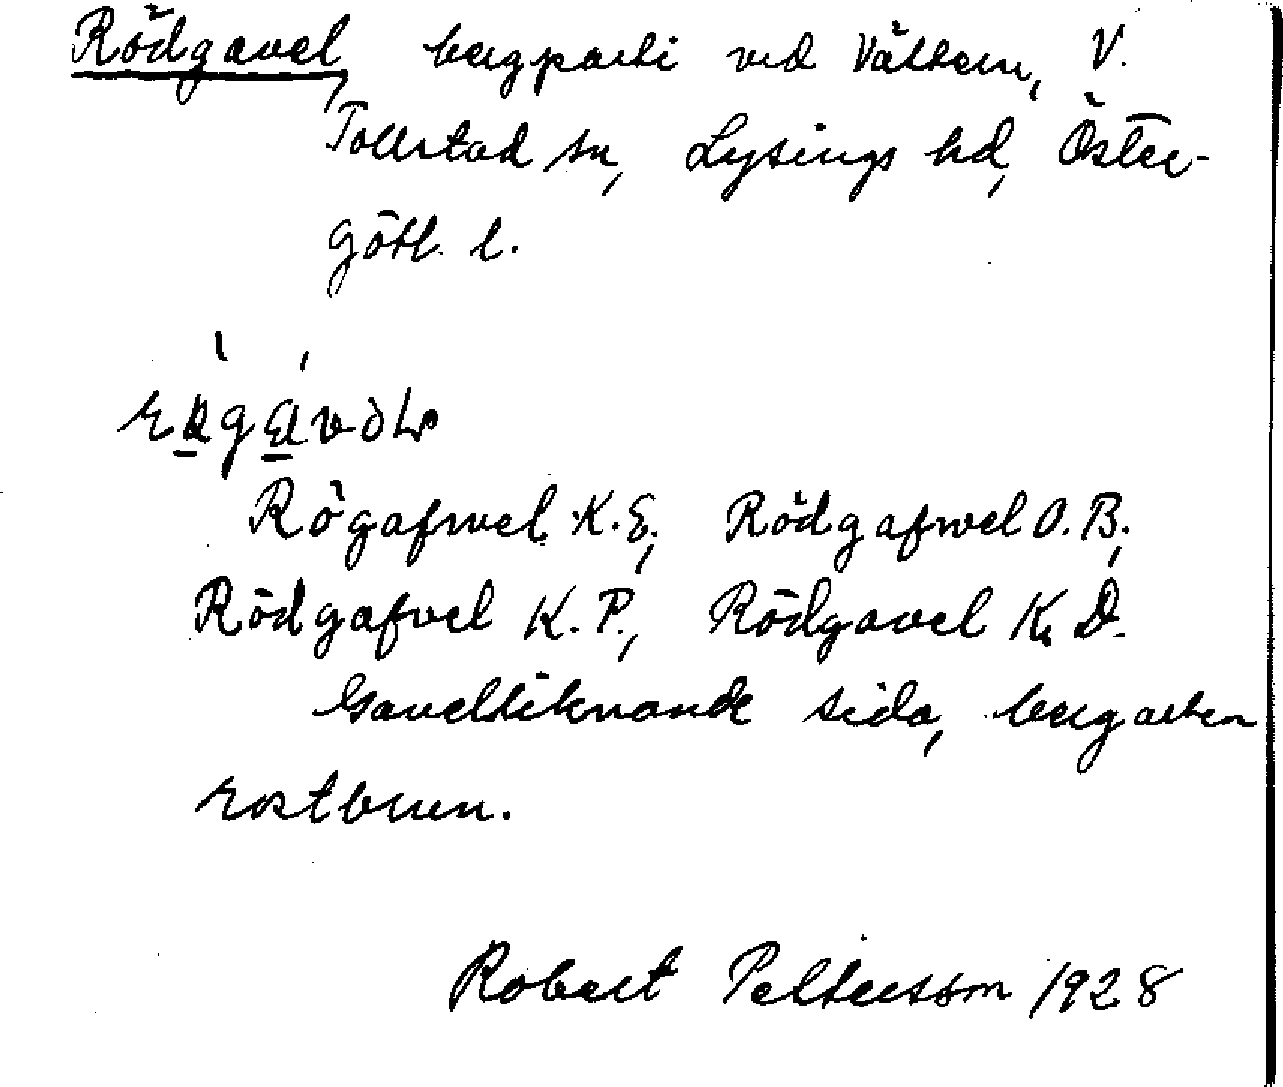 Rödgavel, bergparti vid Vättern, V.
Tollstad sn, Lysings hd, Öster-
götl. l.
Rögafwel K.E., Rödgafwel O.B.,
Rödgafvel K.P., Rödgavel K. D.
Gavelliknande sida, bergarten
rostbrun.
Robert Pettersson 1928